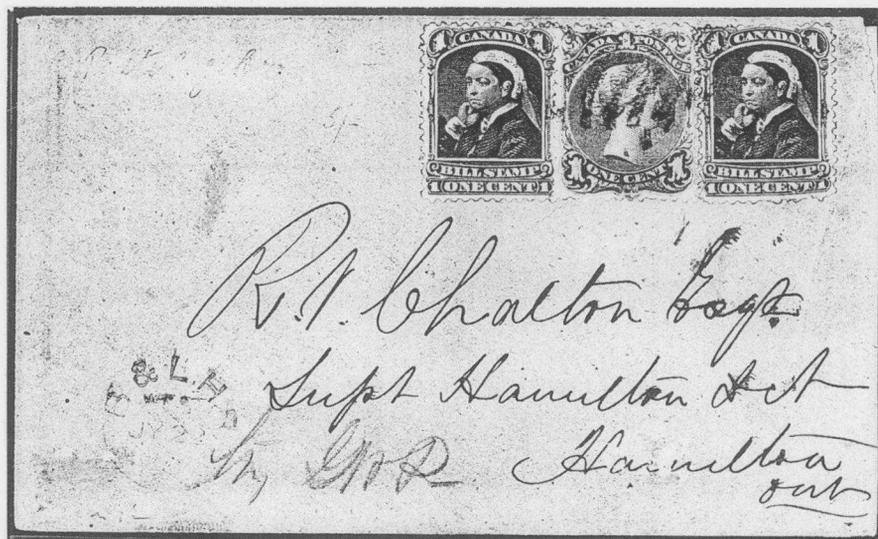 1 CANADA 1
BILL STAMP
1 ONE CENT 1
CANADA 1 POSTAGE
1 ONE CENT 1
1 CANADA 1
BILL STAMP
1 ONE CENT 1
R. Chalton Esqr.
Supt Hamilton
Hamilton
Ont
& L H
G W R